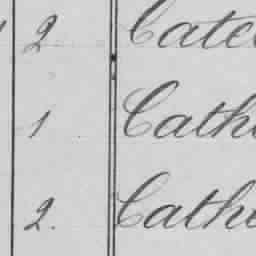 2 Cate
1 Cath
2. Cath